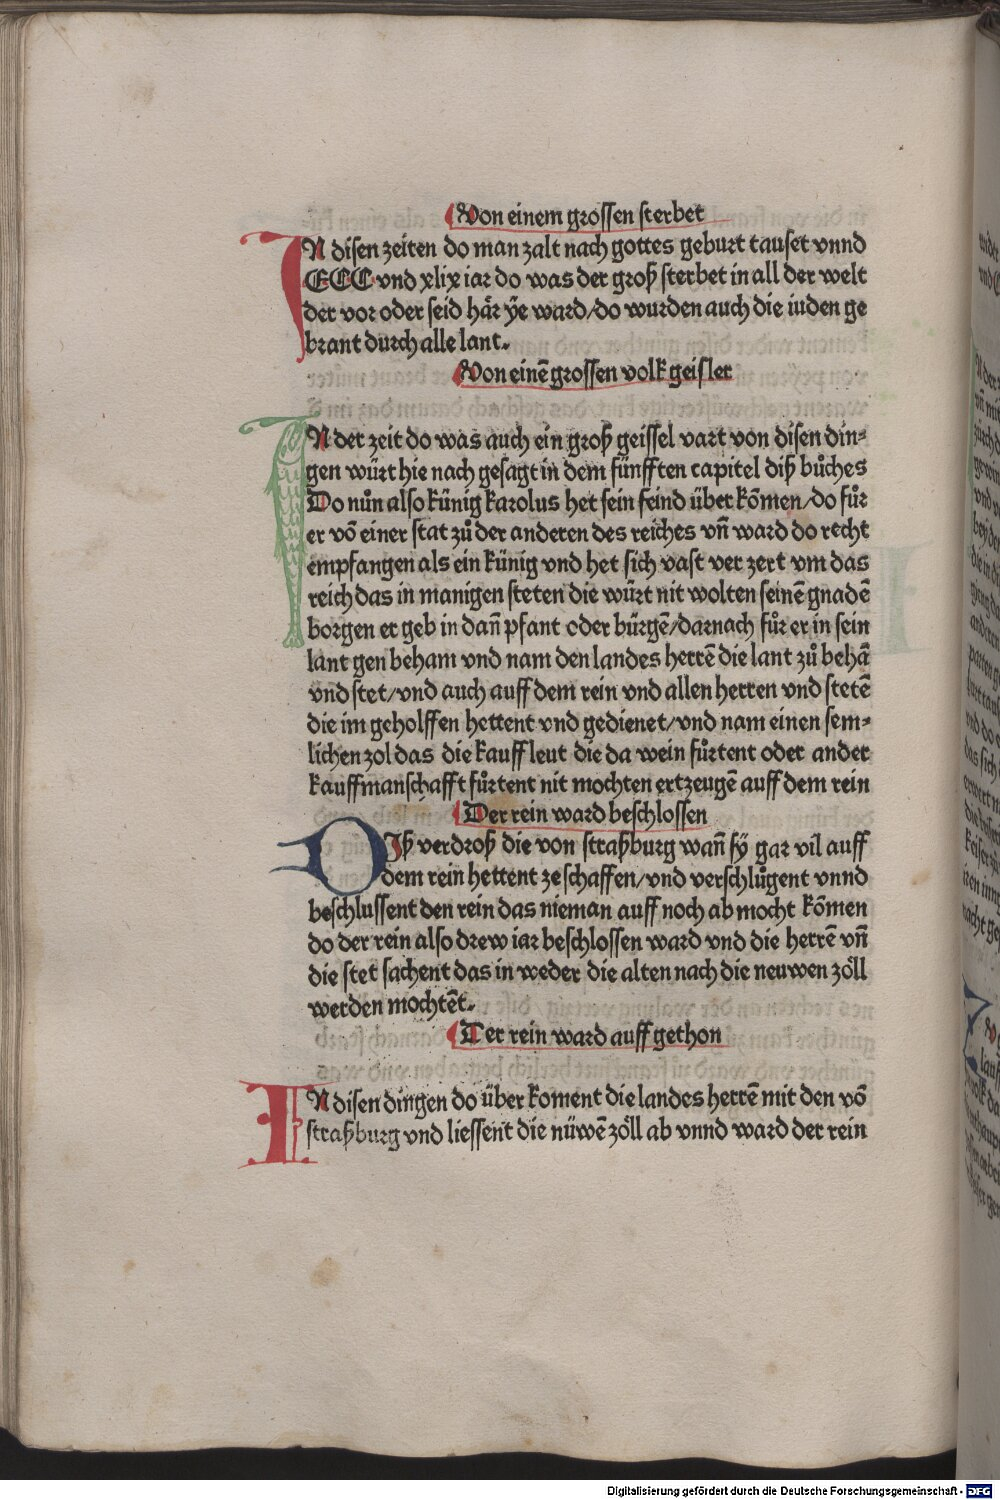 Von einem grossen sterbet
IN disen zeiten do man zalt nach gottes geburt tauset vnnd
CCC vnd xlix iar do was der groß sterbet in all der welt
der vor oder seid här ye ward/do wurden auch die iuden ge
brant durch alle lant.
Von einē grossen volk geisler
IN der zeit do was auch ein groß geissel vart von disen din⸗
gen würt hie nach gesagt in dem fünfften capitel diß bůches
Do nůn also künig karolus het sein feind über kōmen/do fůr
er vō einer stat zů der anderen des reiches vn̄ ward do recht
empfangen als ein künig vnd het sich vast ver zert vm das
reich das in manigen steten die würt nit wolten seinē gnadē
borgen er geb in dan̄ pfant oder bürgē/darnach fůr er in sein
lant gen beham vnd nam den landes herrē die lant zů behā
vnd stet/vnd auch auff dem rein vnd allen herren vnd stetē
die im geholffen hettent vnd gedienet/vnd nam einen sem⸗
lichen zol das die kauff leut die da wein fůrtent oder ander
kauffmanschafft fůrtent nit mochten ertzeugē auff dem rein
Der rein ward beschlossen
DIß verdroß die von straßburg wan̄ sÿ gar vil auff
dem rein hettent ze schaffen/vnd verschlůgent vnnd
beschlussent den rein das nieman auff noch ab mocht kōmen
do der rein also drew iar beschlossen ward vnd die herrē vn̄
die stet sachent das in weder die alten nach die neuwen zöll
werden mochtēt.
Der rein ward auff gethon
IN disen dingen do über koment die landes herrē mit den vō
straßburg vnd liessent die nüwē zöll ab vnnd ward der rein
Digitalisierung gefördert durch die Deutsche Forschungsgemeinschaft - DFG